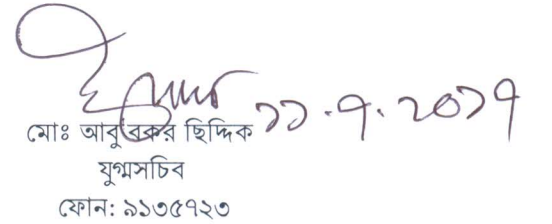 ১১.৭.২০১৭
মোঃ আবু বকর ছিদ্দিক
যুগ্মসচিব
ফোন: ৯১৩৫৭২৩